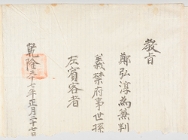 教旨
鄭弘淳為兼判
義禁府事世孫
左賓客者
乾隆三十七年正月二十七日